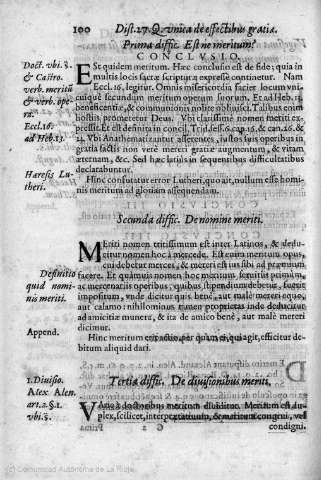 100 Dist. 27. Q. vnica de effectibus gratiæ.
Prima diffic. Est ne meritum?
CONCLVSIO.
Doct. vbi. s.
& Castro.
verb. meritũ
& verb. ope-
ra.
Eccl. 16.
ad Heb. 13.
Hæresis Lu-
theri.
Est quidem meritum. Hæc conclusio est de fide; quia in
multis locis sacræ scripturæ expresse continetur. Nam
Eccl. 16. legitur. Omnis misericordia faciet locum vni-
cuique secundum meritum operum suorum. Et ad Heb. 13.
beneficentiæ, & communionis nolite obliuisci. Talibus enim
hostijs promeretur Deus. Vbi clarissime nomen meriti ex-
pressit. Et est definita in concil. Trid. sess. 6. cap. 16. & can. 26. &
32. Vbi Anathematizantur asserentes, iustos suis operibus in
gratia factis non vere mereri gratiæ augmentum, & vitam
æternam, &c. Sed hæc latius in sequentibus difficultatibus
declarabuntur.
Hinc confutatur error Lutheri, quo ait, nullum esse homi-
nis meritum ad gloriam assequendam.
Secunda diffic. De nomine meriti.
Definitio
quid nomi-
nis meriti.
Append.
Meriti nomen tritissimum est inter Latinos, & dedu-
citur nomen hoc à mercede. Est enim meritum opus,
cui debetur merces, & mereri est ius sibi ad præmium
facere. Et quamuis nomen hoc meritum, seruitijs primum,
ac mercenarijs operibus, quibus stipendium debetur, fuerit
impositum, vnde dicitur quis bene, aut male mereri equo,
aut calamo: nihilominus tamen proprietas inde deducitur
ad amicitiæ munera, & ita de amico bene, aut male mereri
dicimur.
Hinc meritum erit actio, per quam ei, qui agit, efficitur de-
bitum aliquid dari.
Tertia diffic. De diuisionibus meriti.
1. Diuisio.
Alex Alen.
art. 2. §. 1.
vbi. s.
meritum diuiditur. Meritum est du-
plex, scilicet, interpretatiuum, & meritum congrui, vel
condigni.
(c) Comunidad Autónoma de La Rioja